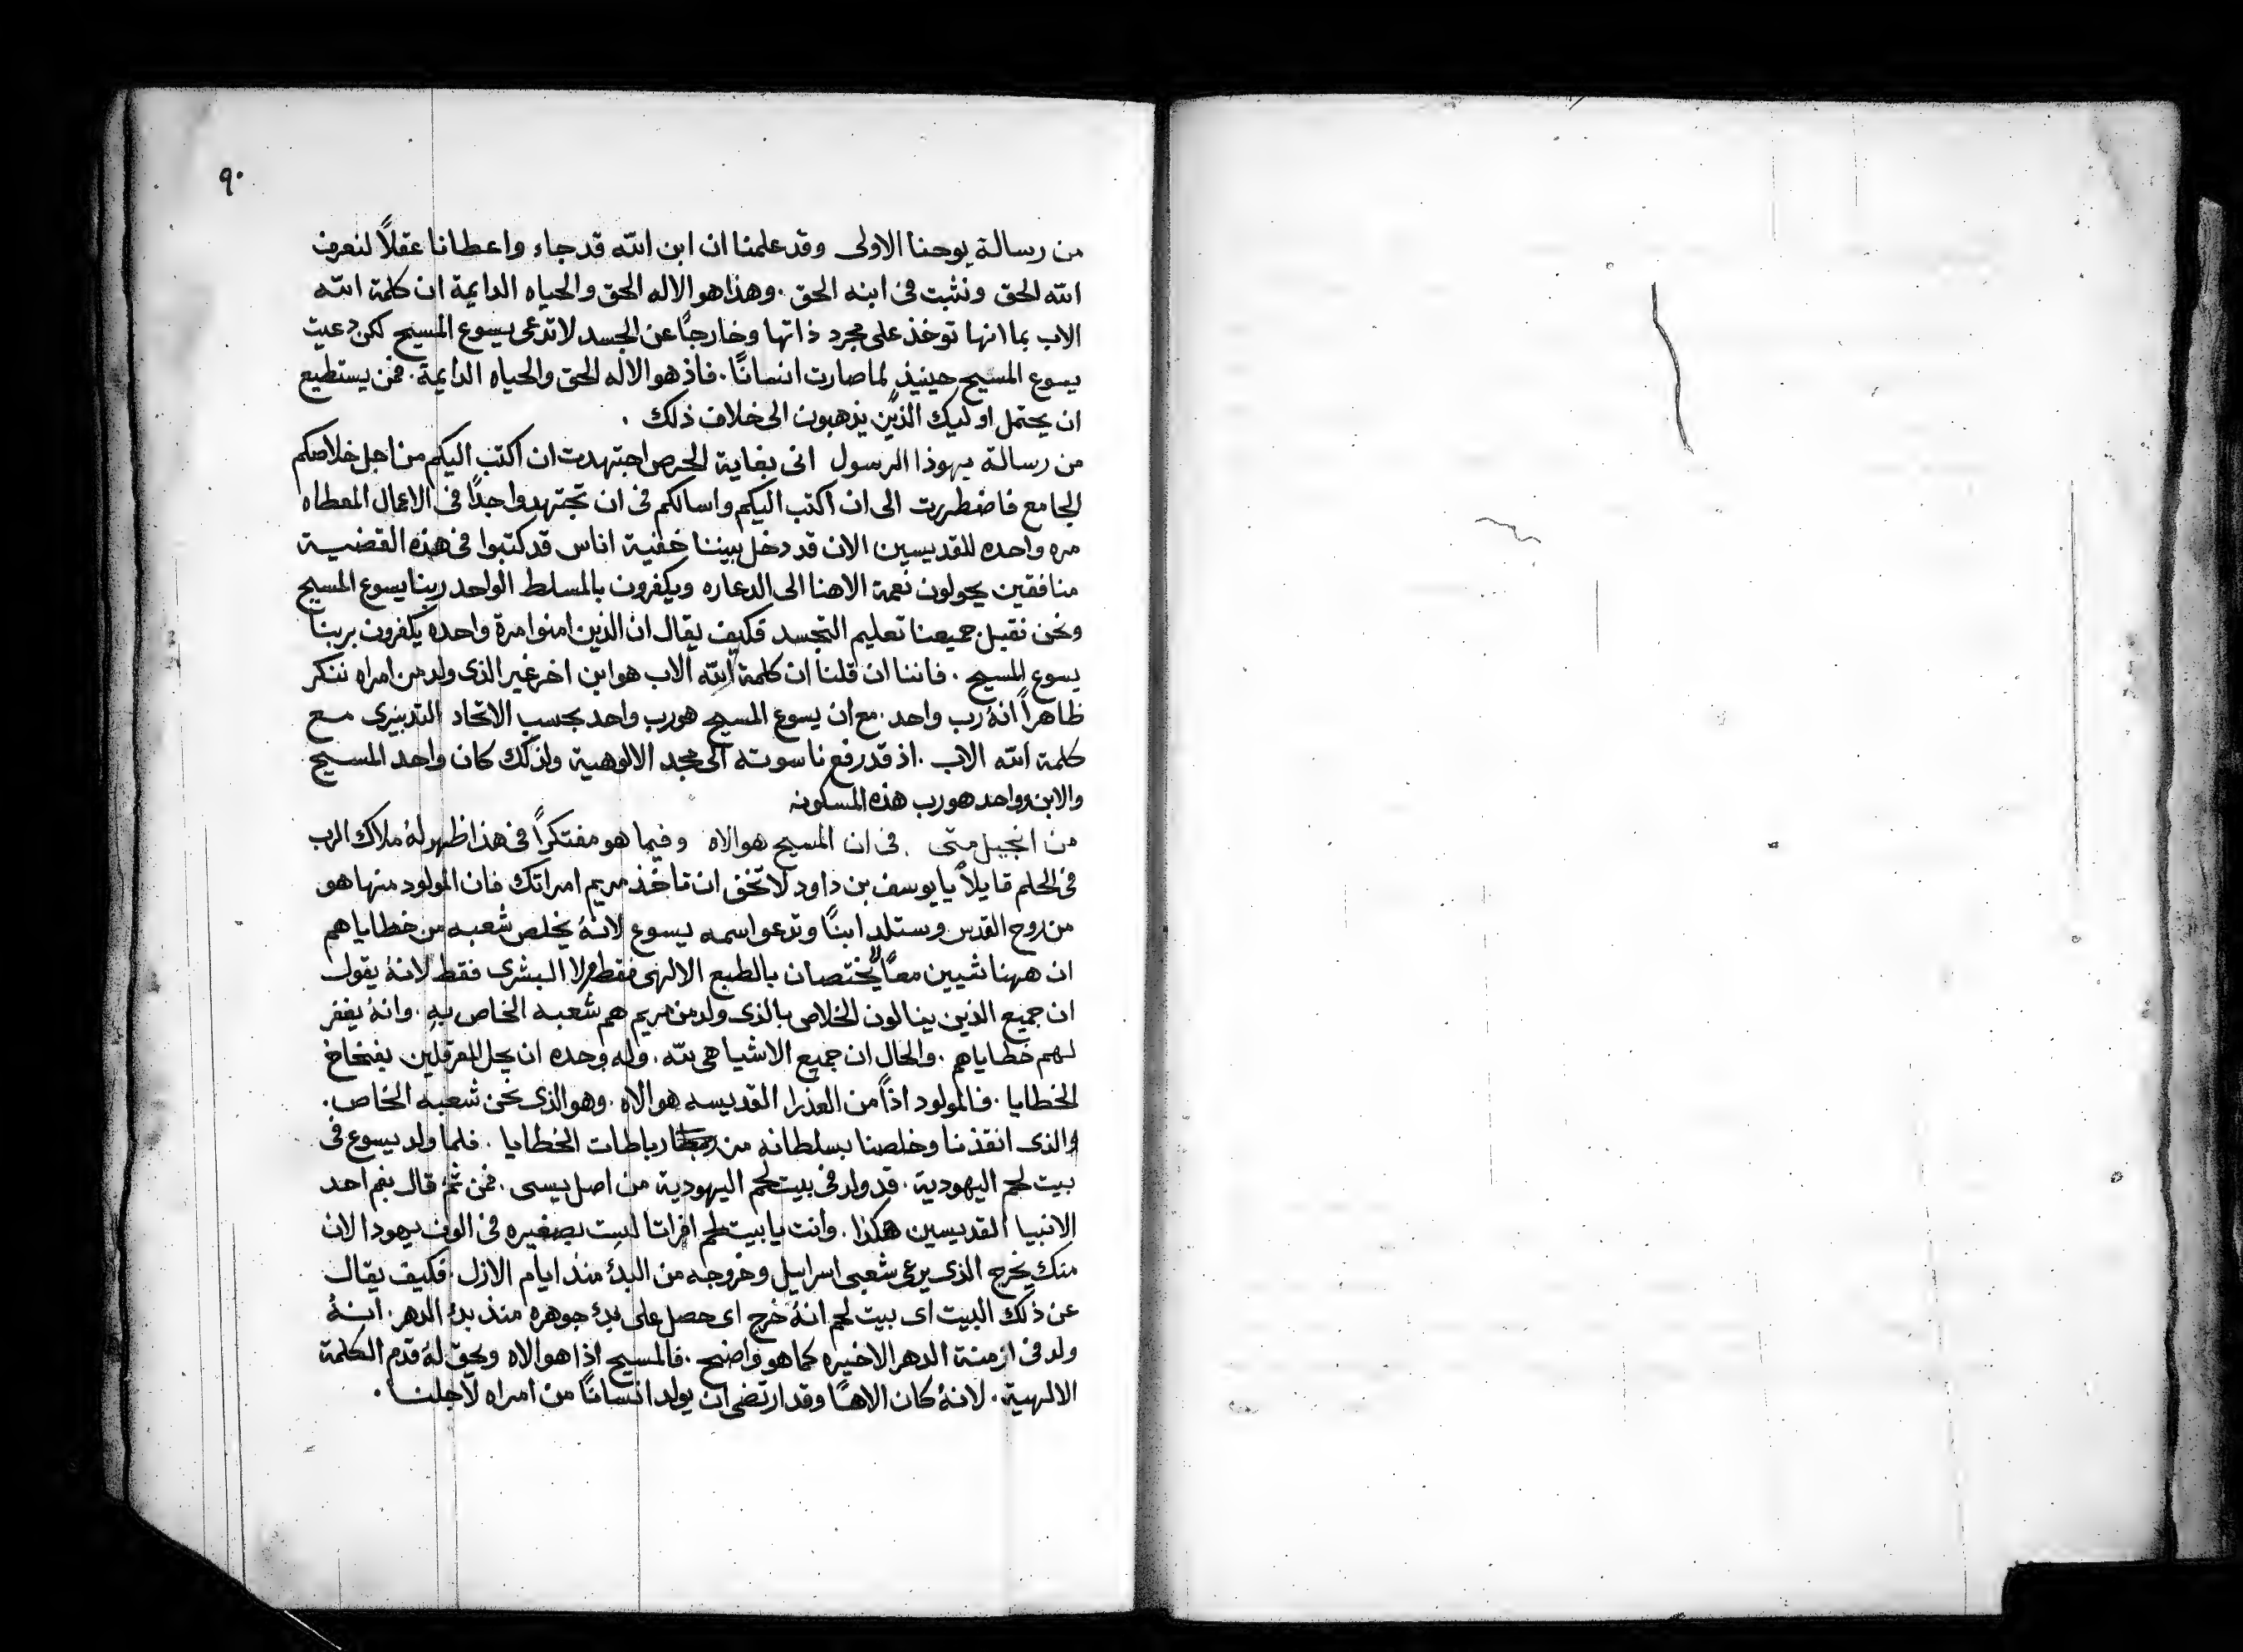 ٩٠
من رسالة يوحنا الاولى وقد علمنا ان ابن الله قد جاء واعطانا عقلاً لنعرف
الله الحق ونثبت فى ابنه الحق . وهذا هو الاله الحق والحياه الدايمة ان كلمة الله
الاب بما انها توخذ على مجرد ذاتها وخارجًا عن الجسد لا تدعى يسوع المسيح لكن دعيت
يسوع المسيح حينيذٍ لما صارت انسانًا . فاذ هو الاله الحق والحياه الدايمة . فمن يستطيع
ان يحتمل اوليك الذين يذهبون الى خلاف ذلك .
من رسالة يهوذا الرسول انى بغاية الحرص اجتهدت ان اكتب اليكم من اجل خلاصكم
الجامع فاضطررت الى ان اكتب اليكم واسالكم فى ان تجتهدوا جدًا فى الاعمال المعطاه
مره واحده للقديسين الان قد دخل بيننا خفية اناس قد كتبوا فى هذه القضية
منافقين يحولون نعمة الاهنا الى الدعاره ويكفرون بالمسلط الواحد ربنا يسوع المسيح
ونحن نقبل جميعنا تعليم التجسد فكيف يقال ان الذين امنوا مرة واحده يكفرون بربنا
يسوع المسيح . فاننا ان قلنا ان كلمة الله الاب هو ابن اخر غير الذى ولد من امراه ننكر
ظاهراً انهُ رب واحد . مع ان يسوع المسيح هو رب واحد بحسب الاتحاد التدبيرى مع
كلمة الله الاب . اذ قد رفع ناسوته الى مجد الالوهية ولذلك كان واحد المسيح
والابن وواحد هو رب هذه المسكونه
من انجيل متى . فى ان المسيح هو الاه وفيما هو مفتكراً فى هذا ظهر لهُ ملاك الرب
فى الحلم قايلاً يا يوسف بن داود لا تخف ان تاخذ مريم امراتك فان المولود منها هو
من روح القدس وستلد ابنًا وتدعو اسمه يسوع لانهُ يخلص شعبه من خطاياهم
ان ههنا شيين معًا لا يختصان بالطبع الالهى فقط ولا البشرى فقط لانهُ يقول
ان جميع الذين ينالون الخلاص بالذى ولد من مريم هم شعبه الخاص به . وانهُ يغفر
لهم خطاياهم . والحال ان جميع الاشيا هى لله . وله وحده ان يحل المعرقلين بفخاخ
الخطايا . فالمولود اذًا من العذرا القديسه هو الاه . وهو الذى نحن شعبه الخاص .
والذى انقذنا وخلصنا بسلطانه من رباطات الخطايا . فلما ولد يسوع فى
بيت لحم اليهودية . قد ولد فى بيت لحم اليهودية من اصل يسى . فمن ثمَّ قال بفم احد
الانبيا القديسين هكذا . وانت يا بيت لحم افراتا لست بصغيره فى الوف يهودا لان
منك يخرج الذى يرعى شعبى اسراييل وخروجه من البدء منذ ايام الازل . فكيف يقال
عن ذلك البيت اى بيت لحم انهُ خرج اى حصل على بدء جوهره منذ بدء الدهر . انهُ
ولد فى ازمنة الدهر الاخيره كما هو واضح . فالمسيح اذًا هو الاه ويحق لهُ قدم الكلمة
الالهية . لانهُ كان الاهًا وقد ارتضى ان يولد انسانًا من امراه لاجلنا .